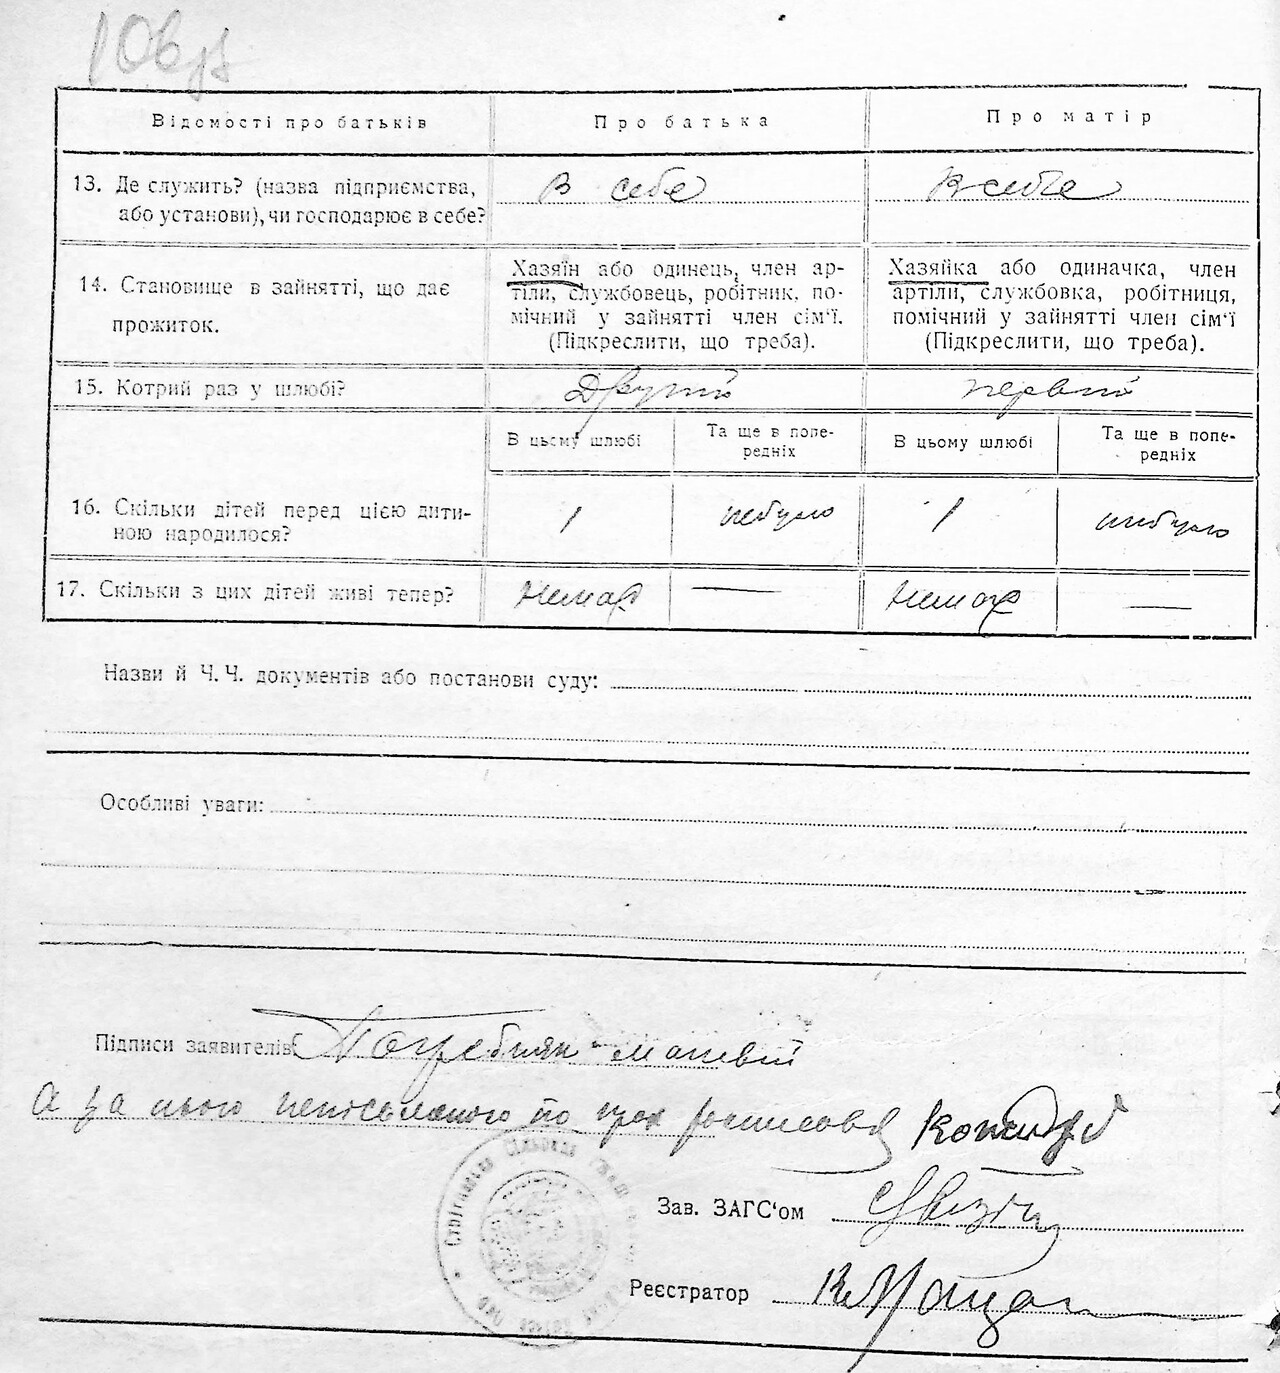 10 вуз
Відомості про батьків Про батька Про матір
13. Де служить? (назва підприємства, або установи), чи господарює в себе? В себе В себе
14. Становище в зайнятті, що дає прожиток.
Хазяїн або одинець, член ар-
тіли, службовець, робітник, по-
мічний у зайнятті член сім‘ї.
(Підкреслити, що треба).
Хазяйка або одиначка, член
артіли, службовка, робітниця,
помічний у зайнятті член сім‘ї
(Підкреслити, що треба).
15. Котрий раз у шлюбі? Другий первий
В цьому шлюбі Та ще в попе-
редніх В цьому шлюбі Та ще в попе-
редніх
16. Скільки дітей перед цією дити-
ною народилося? 1 небуло 1 небуло
17. Скільки з цих дітей живі тепер? Немає — Немає —
Назви й Ч. Ч. документів або постанови суду:
Особливі уваги:
Підписи заявителів: Погребняк
а за нього неписьменого по
Зав. ЗАГС‘ом
Реєстратор